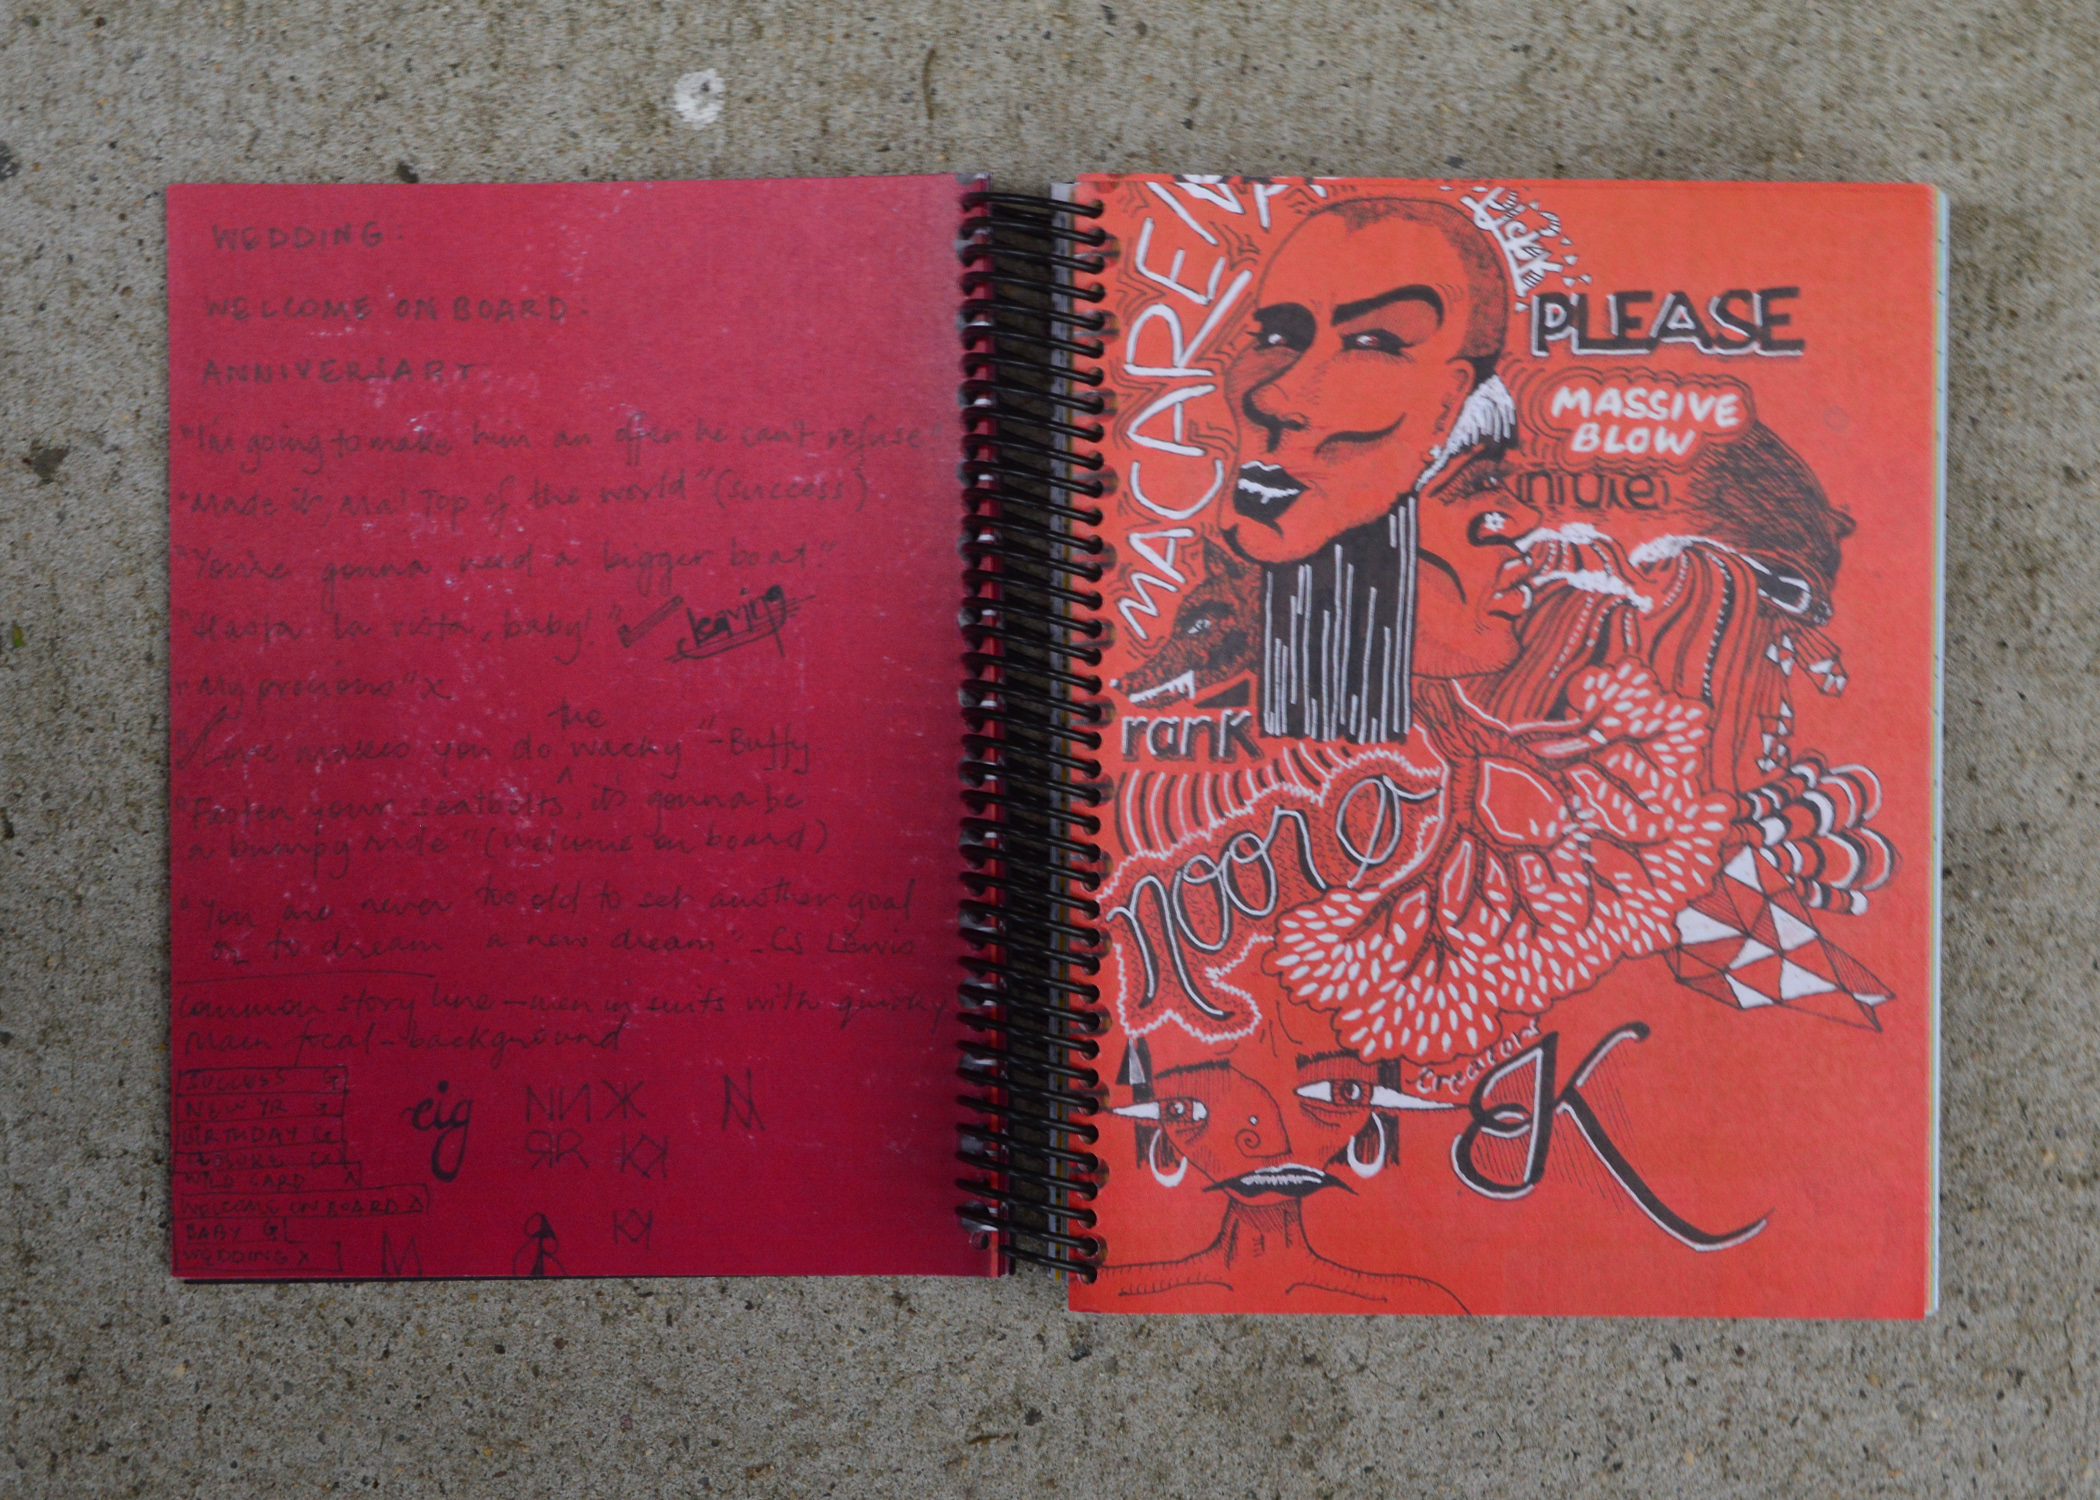 WEDDING:
WELCOME ON BOARD:
ANNIVERSARY
"I'm going to make him an offer he can't refuse"
"Made it, Ma! Top of the world" (success)
"You're gonna need a bigger boat."
"Hasta la vista, baby!"
"My precious" x
"Love makes you do the wacky" - Buffy
"Fasten your seatbelts, it's gonna be
a bumpy ride" (welcome on board)
"You are never too old to set another goal
or to dream a new dream." - CS Lewis
Common story line - men in suits with quirky
Main focal - background
SUCCESS
NEW YR
BIRTHDAY
WILD CARD
WELCOME ON BOARD
BABY
WEDDING X
eig
MACAREN
PLEASE
MASSIVE
BLOW
rank
noora
K